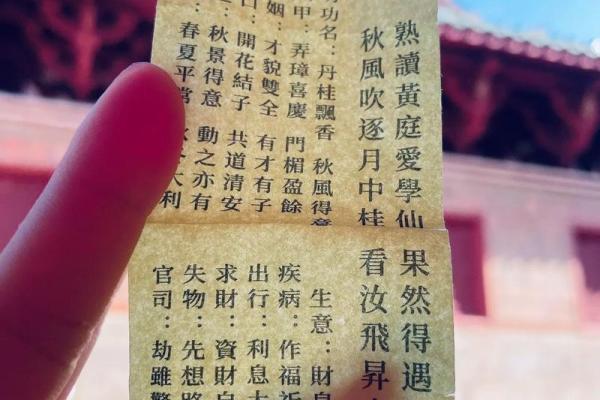 熟讀黃庭愛學仙
秋風吹逐月中桂
功名：丹桂飄香 秋風得意
甲：弄璋喜慶 門楣盈餘
姻：才貌雙全 有才有子
口：開花結子 共道清安
：秋景得意 動之亦有
：春夏平常 大利
果然得遇
看汝飛昇
生意：財息
疾病：作福祈
出行：利息大
求財：資財自
失物：先想路
官司：劫雖驚